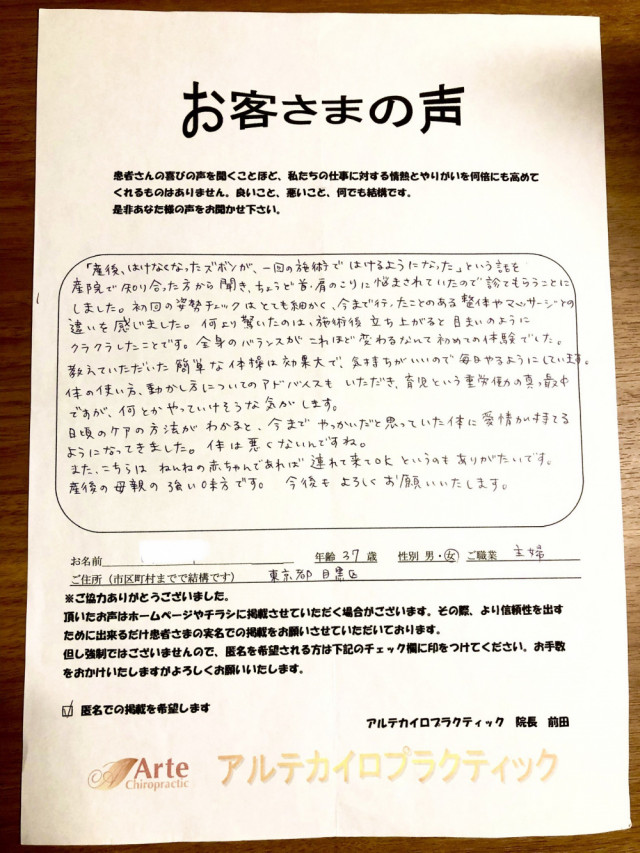 お客さまの声
患者さんの喜びの声を聞くことほど、私たちの仕事に対する情熱とやりがいを何倍にも高めて
くれるものはありません。良いこと、悪いこと、何でも結構です。
是非あなた様の声をお聞かせ下さい。
「産後、はけなくなったズボンが、一回の施術ではけるようになった」という話を
産院で知り合った方から聞き、ちょうど首・肩のこりに悩まされていたので診てもらうことに
しました。初回の姿勢チェックはとても細かく、今まで行ったことのある整体やマッサージとの
違いを感じました。何より驚いたのは、施術後立ち上がると目まいのように
クラクラしたことです。全身のバランスがこれほど変わるなんて初めての体験でした。
教えていただいた簡単な体操は効果大で、気持ちがいいので毎日やるようにしています。
体の使い方、動かし方についてのアドバイスもいただき、育児という重労働の真っ最中
ですが、何とかやっていけそうな気がします。
日頃のケアの方法がわかると、今までやっかいだと思っていた体に愛情が持てる
ようになってきました。体は悪くないんですね。
また、こちらはねんねの赤ちゃんであれば連れて来てOKというのもありがたいです。
産後の母親の強い味方です。今後もよろしくお願いいたします。
お名前 年齢 37 歳 性別 男・女 ご職業 主婦
ご住所（市区町村までで結構です） 東京都目黒区
※ご協力ありがとうございました。
頂いたお声はホームページやチラシに掲載させていただく場合がございます。その際、より信頼性を出す
ために出来るだけ患者さまの実名での掲載をお願いさせていただいております。
但し強制ではございませんので、匿名を希望される方は下記のチェック欄に印をつけてください。お手数
をおかけいたしますがよろしくお願いいたします。
☑ 匿名での掲載を希望します
アルテカイロプラクティック 院長 前田
Arte
Chiropractic
アルテカイロプラクティック